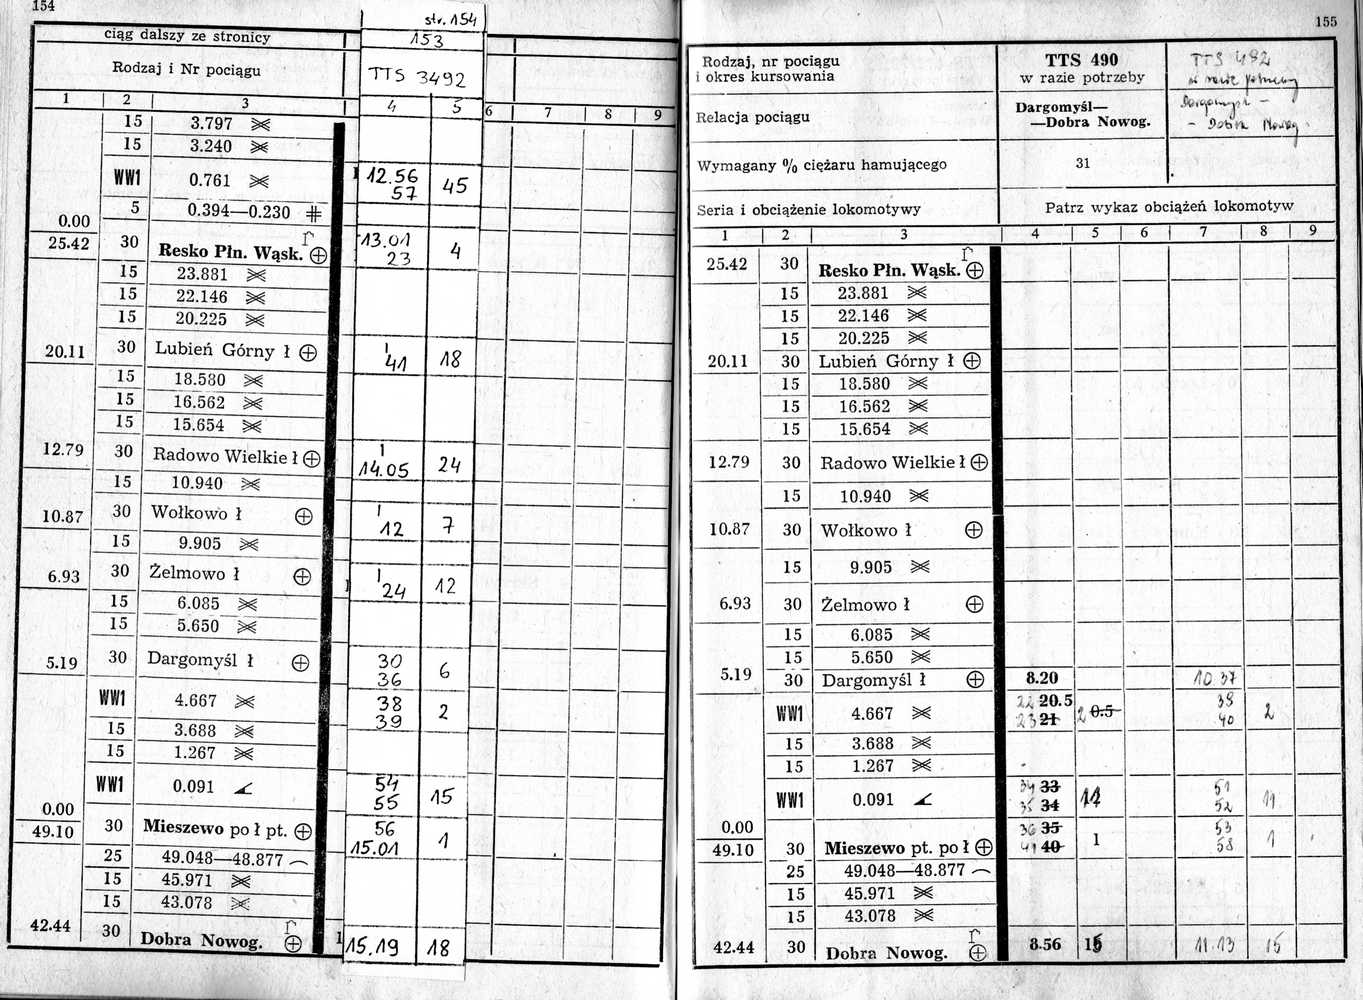 154
str. 154
ciąg dalszy ze stronicy
153
Rodzaj i Nr pociągu
TTS 3492
1 2 3 4 5 6 7 8 9
15 3.797
15 3.240
WW1 0.761 12.56 57 45
5 0.394—0.230
0.00
25.42 30 Resko Płn. Wąsk. 13.01 23 4
15 23.881
15 22.146
15 20.225
20.11 30 Lubień Górny ł 41 18
15 18.580
15 16.562
15 15.654
12.79 30 Radowo Wielkie ł 14.05 24
15 10.940
10.87 30 Wołkowo ł 12 7
15 9.905
6.93 30 Żelmowo ł 24 12
15 6.085
15 5.650
5.19 30 Dargomyśl ł 30 36 6
WW1 4.667 38 39 2
15 3.688
15 1.267
WW1 0.091 54 55 15
0.00
49.10 30 Mieszewo po ł pt. 56 15.01 1
25 49.048—48.877
15 45.971
15 43.078
42.44 30 Dobra Nowog. 15.19 18
155
Rodzaj, nr pociągu
i okres kursowania
TTS 490
w razie potrzeby
TTS 492
w razie potrzeby
Relacja pociągu
Dargomyśl—
—Dobra Nowog.
Dargomyśl —
— Dobra Nowog.
Wymagany % ciężaru hamującego 31
Seria i obciążenie lokomotywy Patrz wykaz obciążeń lokomotyw
1 2 3 4 5 6 7 8 9
25.42 30 Resko Płn. Wąsk.
15 23.881
15 22.146
15 20.225
20.11 30 Lubień Górny ł
15 18.580
15 16.562
15 15.654
12.79 30 Radowo Wielkie ł
15 10.940
10.87 30 Wołkowo ł
15 9.905
6.93 30 Żelmowo ł
15 6.085
15 5.650
5.19 30 Dargomyśl ł 8.20 10 37
WW1 4.667 22 20.5 2 0.5 39 2
23 21 40
15 3.688
15 1.267
WW1 0.091 34 33 51 11
35 34 52
0.00 36 35 1 53 1
49.10 30 Mieszewo pt. po ł 41 40 58
25 49.048—48.877
15 45.971
15 43.078
42.44 30 Dobra Nowog. 8.56 15 11.13 15